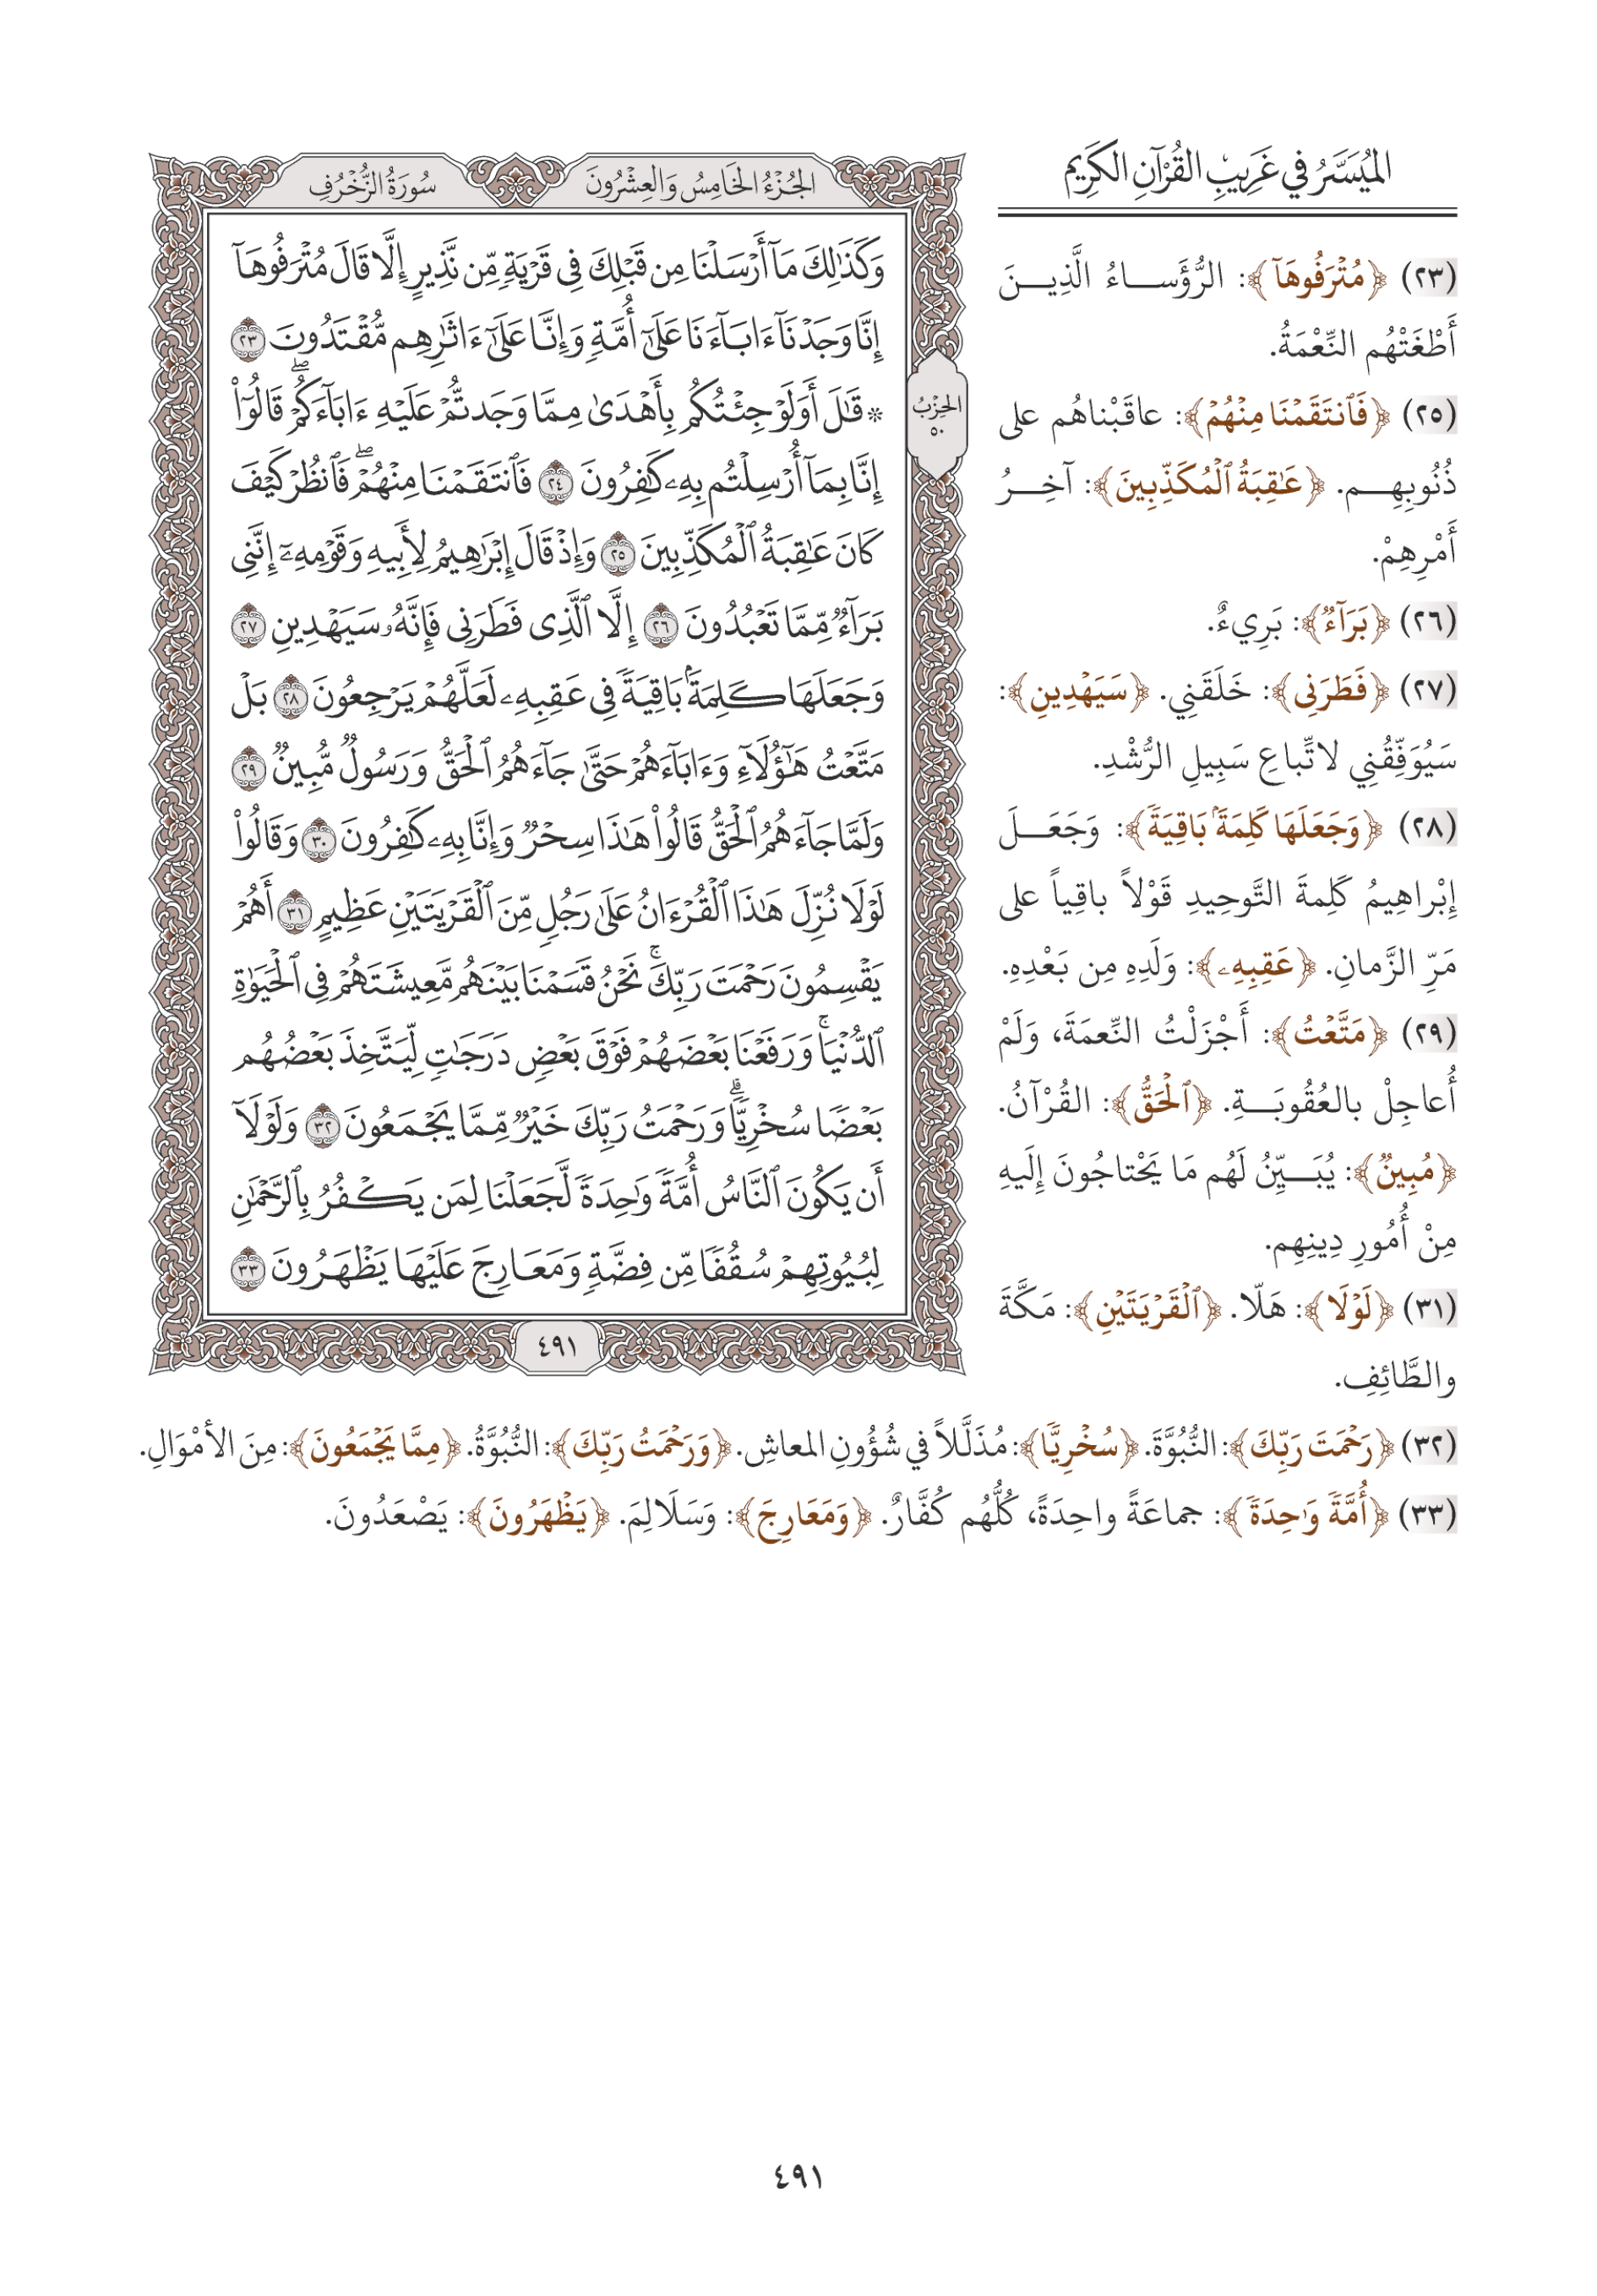 المُيَسَّرُ في غَرِيبِ القُرْآنِ الكَرِيم
الجُزْءُ الخَامِسُ وَالعِشْرُونَ
سُورَةُ الزُّخْرُفِ
وَكَذَٰلِكَ مَآ أَرۡسَلۡنَا مِن قَبۡلِكَ فِي قَرۡيَةٖ مِّن نَّذِيرٍ إِلَّا قَالَ مُتۡرَفُوهَآ
إِنَّا وَجَدۡنَآ ءَابَآءَنَا عَلَىٰٓ أُمَّةٖ وَإِنَّا عَلَىٰٓ ءَاثَٰرِهِم مُّقۡتَدُونَ ٢٣
۞ قَٰلَ أَوَلَوۡ جِئۡتُكُم بِأَهۡدَىٰ مِمَّا وَجَدتُّمۡ عَلَيۡهِ ءَابَآءَكُمۡۖ قَالُوٓاْ
إِنَّا بِمَآ أُرۡسِلۡتُم بِهِۦ كَٰفِرُونَ ٢٤ فَٱنتَقَمۡنَا مِنۡهُمۡۖ فَٱنظُرۡ كَيۡفَ
كَانَ عَٰقِبَةُ ٱلۡمُكَذِّبِينَ ٢٥ وَإِذۡ قَالَ إِبۡرَٰهِيمُ لِأَبِيهِ وَقَوۡمِهِۦٓ إِنَّنِي
بَرَآءٞ مِّمَّا تَعۡبُدُونَ ٢٦ إِلَّا ٱلَّذِي فَطَرَنِي فَإِنَّهُۥ سَيَهۡدِينِ ٢٧
وَجَعَلَهَا كَلِمَةَۢ بَاقِيَةٗ فِي عَقِبِهِۦ لَعَلَّهُمۡ يَرۡجِعُونَ ٢٨ بَلۡ
مَتَّعۡتُ هَٰٓؤُلَآءِ وَءَابَآءَهُمۡ حَتَّىٰ جَآءَهُمُ ٱلۡحَقُّ وَرَسُولٞ مُّبِينٞ ٢٩
وَلَمَّا جَآءَهُمُ ٱلۡحَقُّ قَالُواْ هَٰذَا سِحۡرٞ وَإِنَّا بِهِۦ كَٰفِرُونَ ٣٠ وَقَالُواْ
لَوۡلَا نُزِّلَ هَٰذَا ٱلۡقُرۡءَانُ عَلَىٰ رَجُلٖ مِّنَ ٱلۡقَرۡيَتَيۡنِ عَظِيمٍ ٣١ أَهُمۡ
يَقۡسِمُونَ رَحۡمَتَ رَبِّكَۚ نَحۡنُ قَسَمۡنَا بَيۡنَهُم مَّعِيشَتَهُمۡ فِي ٱلۡحَيَوٰةِ
ٱلدُّنۡيَاۚ وَرَفَعۡنَا بَعۡضَهُمۡ فَوۡقَ بَعۡضٖ دَرَجَٰتٖ لِّيَتَّخِذَ بَعۡضُهُم
بَعۡضٗا سُخۡرِيّٗاۗ وَرَحۡمَتُ رَبِّكَ خَيۡرٞ مِّمَّا يَجۡمَعُونَ ٣٢ وَلَوۡلَآ
أَن يَكُونَ ٱلنَّاسُ أُمَّةٗ وَٰحِدَةٗ لَّجَعَلۡنَا لِمَن يَكۡفُرُ بِٱلرَّحۡمَٰنِ
لِبُيُوتِهِمۡ سُقُفٗا مِّن فِضَّةٖ وَمَعَارِجَ عَلَيۡهَا يَظۡهَرُونَ ٣٣
الحِزْبُ
٥٠
٤٩١
(٢٣) ﴿مُتۡرَفُوهَآ﴾: الرُّؤَسَاءُ الَّذِينَ
أَطْغَتْهُم النِّعْمَةُ.
(٢٥) ﴿فَٱنتَقَمۡنَا مِنۡهُمۡ﴾: عاقَبْناهُم على
ذُنُوبِهِم. ﴿عَٰقِبَةُ ٱلۡمُكَذِّبِينَ﴾: آخِرُ
أَمْرِهِمْ.
(٢٦) ﴿بَرَآءٞ﴾: بَرِيءٌ.
(٢٧) ﴿فَطَرَنِي﴾: خَلَقَنِي. ﴿سَيَهۡدِينِ﴾:
سَيُوَفِّقُنِي لاتِّباعِ سَبِيلِ الرُّشْدِ.
(٢٨) ﴿وَجَعَلَهَا كَلِمَةَۢ بَاقِيَةٗ﴾: وَجَعَلَ
إِبْراهِيمُ كَلِمةَ التَّوحِيدِ قَوْلاً باقِياً على
مَرِّ الزَّمانِ. ﴿عَقِبِهِۦ﴾: وَلَدِهِ مِن بَعْدِهِ.
(٢٩) ﴿مَتَّعۡتُ﴾: أَجْزَلْتُ النِّعمَةَ، وَلَمْ
أُعاجِلْ بالعُقُوبَةِ. ﴿ٱلۡحَقُّ﴾: القُرْآنُ.
﴿مُبِينٞ﴾: يُبَيِّنُ لَهُم مَا يَحْتاجُونَ إِلَيهِ
مِنْ أُمُورِ دِينِهِم.
(٣١) ﴿لَوۡلَا﴾: هَلّا. ﴿ٱلۡقَرۡيَتَيۡنِ﴾: مَكَّةَ
والطَّائِفِ.
(٣٢) ﴿رَحۡمَتَ رَبِّكَ﴾: النُّبُوَّةَ. ﴿سُخۡرِيّٗا﴾: مُذَلَّلاً في شُؤُونِ المعاشِ. ﴿وَرَحۡمَتُ رَبِّكَ﴾: النُّبُوَّةُ. ﴿مِمَّا يَجۡمَعُونَ﴾: مِنَ الأمْوَالِ.
(٣٣) ﴿أُمَّةٗ وَٰحِدَةٗ﴾: جماعَةً واحِدَةً، كُلُّهُم كُفَّارٌ. ﴿وَمَعَارِجَ﴾: وَسَلَالِمَ. ﴿يَظۡهَرُونَ﴾: يَصْعَدُونَ.
٤٩١